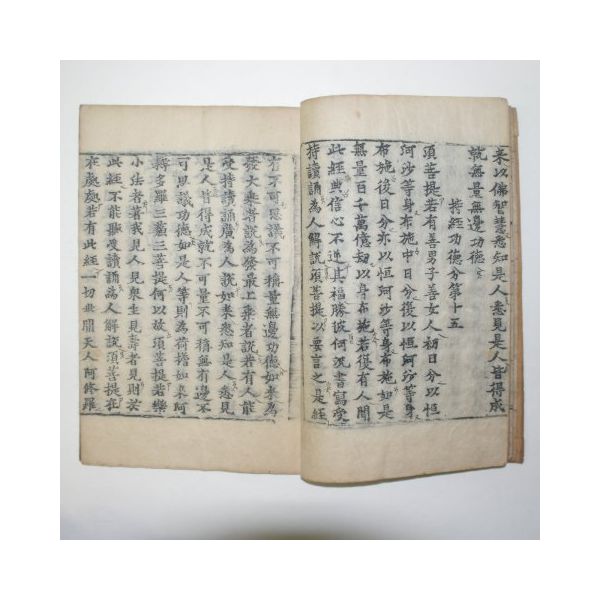 來以佛智慧悉知是人悉見是人皆得成
就無量無邊功德
持經功德分第十五
須菩提若有善男子善女人初日分以恒
河沙等身布施中日分復以恒河沙等身
布施後日分亦以恒河沙等身布施如是
無量百千萬億劫以身布施若復有人聞
此經典信心不逆其福勝彼何況書寫受
持讀誦爲人解說須菩提以要言之是經
有不可思議不可稱量無邊功德如來爲
發大乘者說爲發最上乘者說若有人能
受持讀誦廣爲人說如來悉知是人悉見
是人皆得成就不可量不可稱無有邊不
可思議功德如是人等則爲荷擔如來阿
耨多羅三藐三菩提何以故須菩提若樂
小法者著我見人見衆生見壽者見則於
此經不能聽受讀誦爲人解說須菩提在
在處處若有此經一切世間天人阿修羅